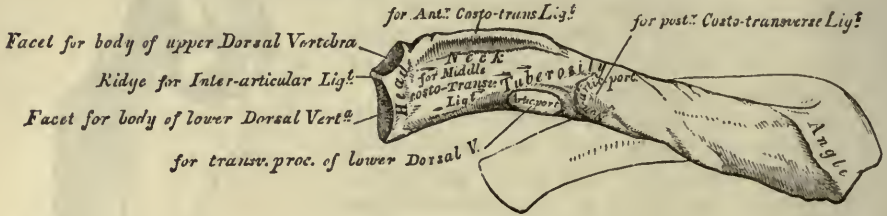 for Ant.ʳ Costo-trans Lig.ᵗ
for post.ʳ Costo-transverse Lig.ᵗ
Facet for body of upper Dorsal Vertebra
Ridge for Inter-articular Lig.ᵗ
Facet for body of lower Dorsal Vert.ᵃ
for transv. proc. of lower Dorsal V.
Head
Neck
for Middle
Costo-Transe.
Ligt
Tuberosity
Artic.port.
port.
Angle